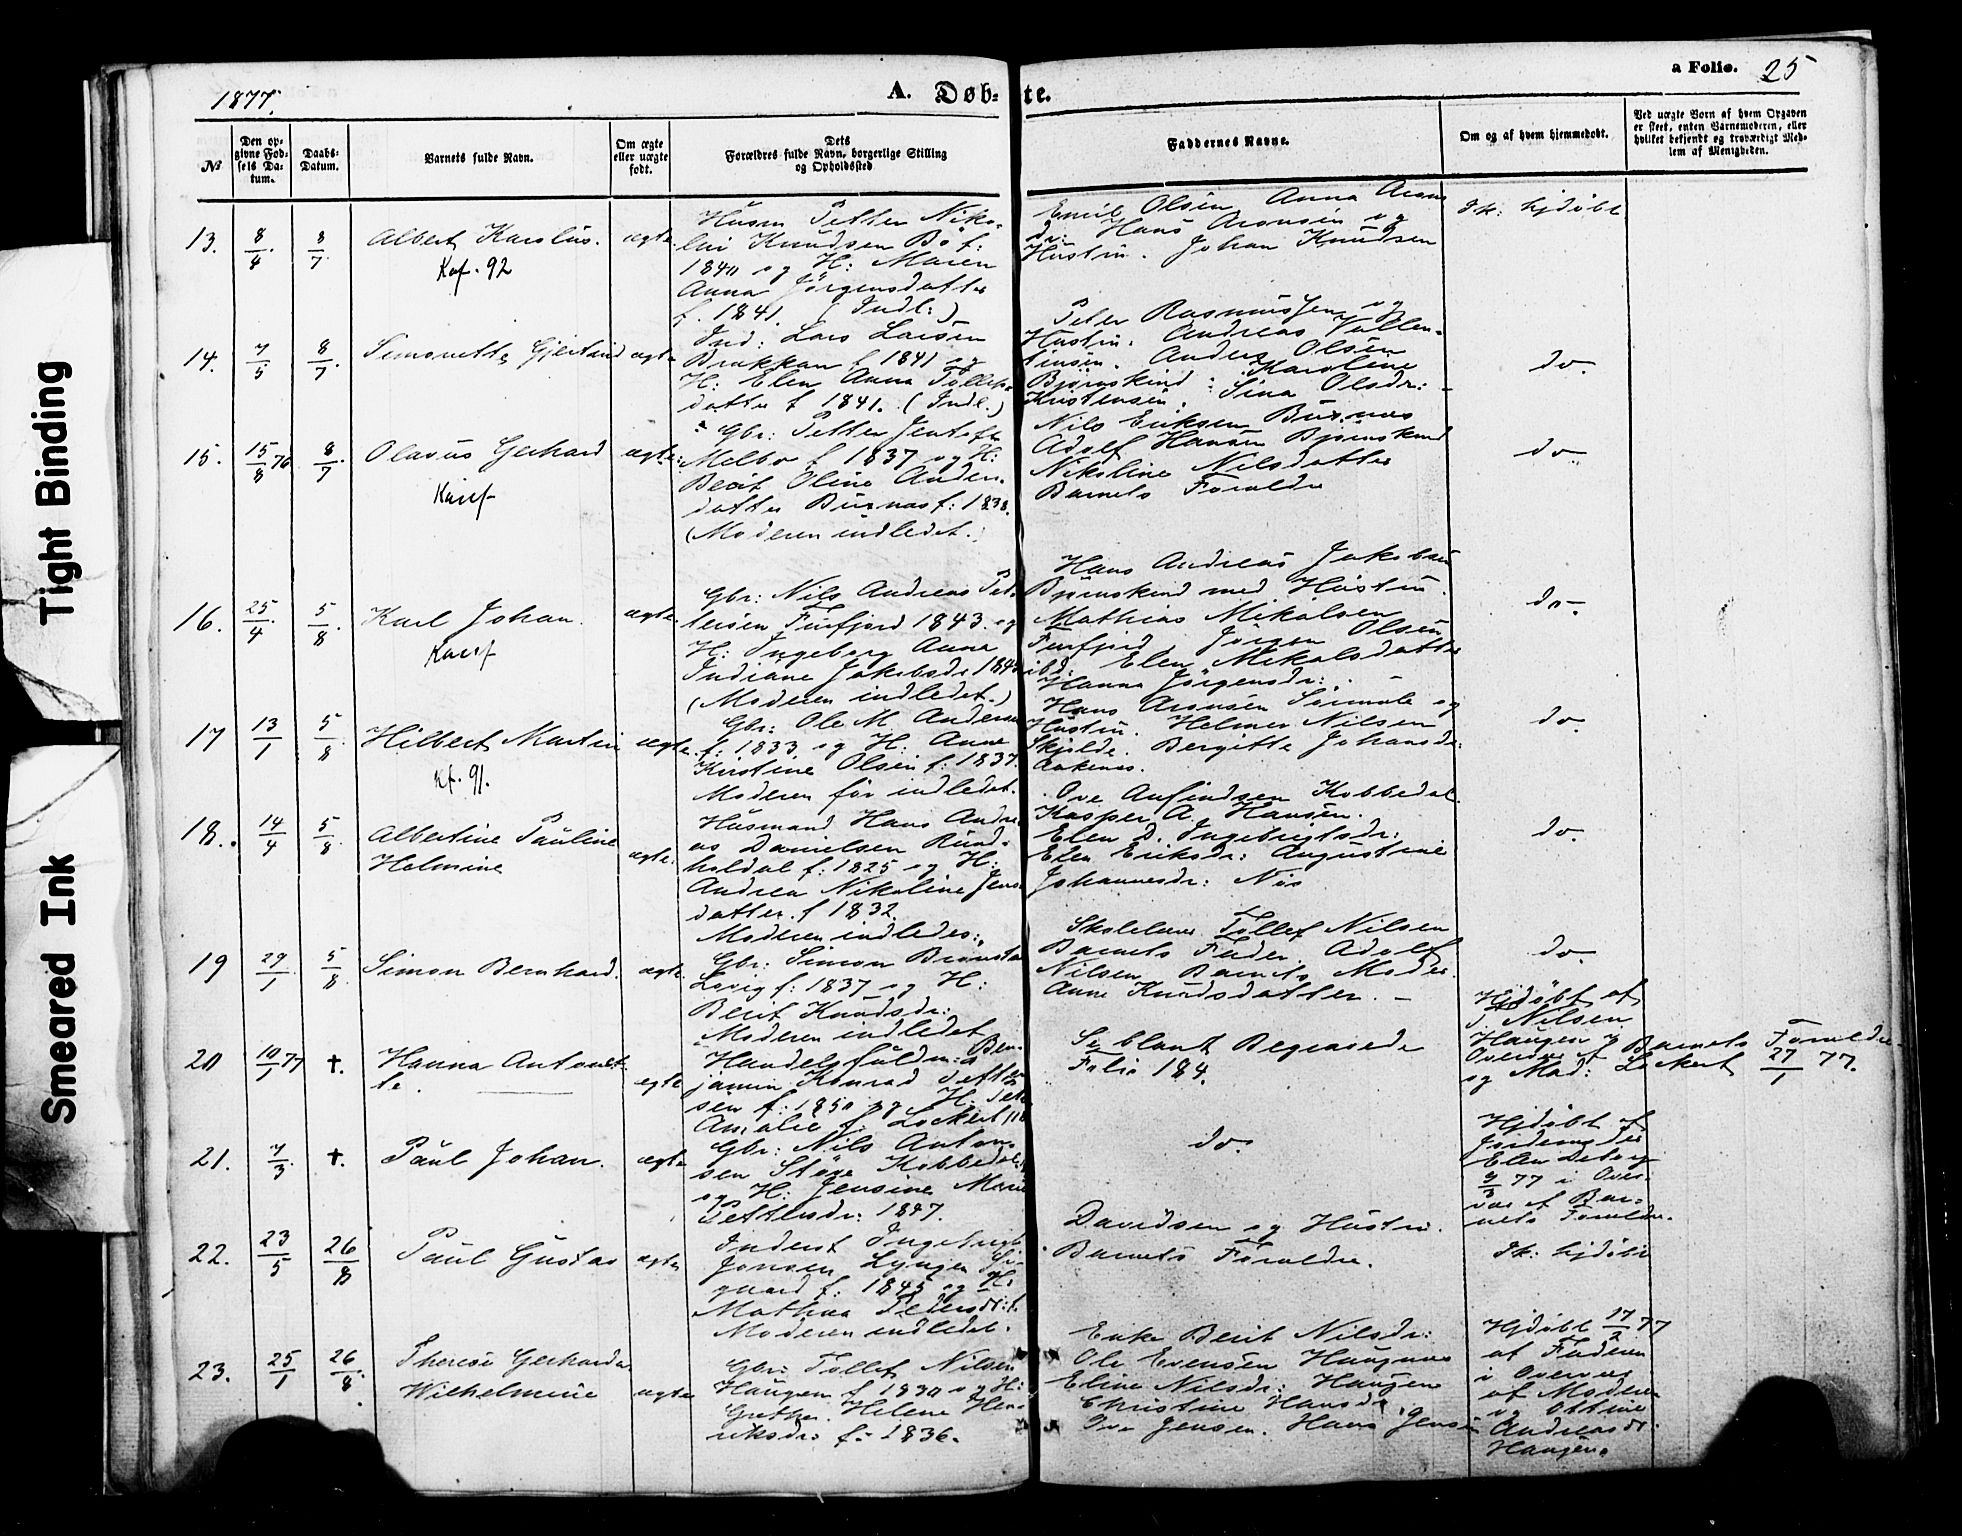 Tight Binding
Smeared Ink
1877.
A. Døb-
te.
a Folio. 25
№
Den op-
givne Fød-
sels Da-
tum.
Daabs-
Datum.
Barnets fulde Navn.
Om ægte
eller uægte
født.
Dets
Forældres fulde Navn, borgerlige Stilling
og Opholdssted
Faddernes Navne.
Om og af hvem hjemmedøbt.
Ved uægte Børn af hvem Opgaven
er skeet, enten Barnemoderen, eller
hvilket bekjendt og troværdigt Med-
lem af Menigheden.
13. 8/4 8/7 Albert Karolus. ægte
Kof. 92
Husm Petter Niko-
lai Knudsen Bø f:
1840 og H: Maren
Anna Jörgensdatter
f. 1841. (Indl:)
Emil Olsen Anna Arons
dr: Hans Aronsen og
Hustru. Johan Knudsen
Ik: hjdøbt
14. 7/5 8/7 ægte
Ind: Lars Larsen
f 1841 og
H: Elen Anna Tollefs-
datter f 1841. (Indl.)
Peter Rasmussen og
Hustru. Andreas Vallen-
tinsen. Anders Olsen
Bjørnskind: Karoline
Kristensen. Sina Olsdr:
do.
15. 15/8 76 8/7 Olavus Gerhard ægte:
Konf
Gbr: Petter Jentoft
Melbo f 1837 og H:
Berit Oline Anders-
datter Buxnas f: 1838.
(Moderen indledet.)
Nils Eriksen Buxnas
Adolf Hansen Bjørnskind
Nikoline Nilsdatter
Barnets Foraldre
do
16. 25/4 5/8 Karl Johan. ægte.
Konf
Gbr: Nils Andreas Pet-
tersen Furfjord 1843. og
H: Ingeborg Anna
Indiane Jakobsdr 184
(Moderen indledet.)
Hans Andreas Jakobsen
Bjørnskind med Hustru.
Mathias Mikalsen
Furfjord. Jörgen Olsen
ibd: Elen Mikalsdatter
Hanna Jörgensdr:.
do.
17 13/1 5/8 Hilbert Martin ægte
Kf. 91.
Gbr: Ole M. Andersen
f: 1833 og H: Anne
Kirstine Olsen f: 1837.
Moderen før indledet.
Hans Aronsen og
Hustru. Helmer Nilsen
Skjolde. Bergitte Johansdr:
do.
18. 14/4 5/8 Albertine Pauline
Helmine
ægte.
Husmand Hans Andre-
as Danielsen Rund-
holdal f: 1825 og H:
Andrea Nikoline Jens
datter. f 1832.
Moderen indledes:
Ove Anfindsen Kobbedal.
Kasper A. Hansen.
Elen D. Ingebrigtsdr:
Elen Eriksdr: Augustine
Johannesdr: Nøs
do.
19 29/1 5/8 Simon Bernhard. ægte
Gbr: Simon
f: 1837 og H:
Berit Knudsdr:
Moderen indledet
Skolelærer Tollef Nilsen
Barnets Fader. Adolf
Nilsen Barnets Moder.
Anne Knudsdatter.
do.
20 10/1 77 †. Hanna Antonet-
te.
ægte
Handelsfuldm: Ben-
jamin Konrad Petter
sen f: 1850 og H:
Amalie f. Lockert
Se blandt Begravede
Folio 184.
Hjdøbt af
J Nilsen
Haugen i
Overvar af Barnets Foraldre
og Mad: Lockert 27/1 77.
21. 7/3 †. Paul Johan. ægte
Gbr: Nils Anton-
sen Støve Kobbedal
og H: Jensine Marie
Pettersdr: 1847.
do.
Hjdøbt af
Jordemoder
Elen Deberg
9/3 77 i Over-
var af Bar-
nets Foraldre.
22. 23/5 26/8 Paul Gustav ægte
Inderst Ingebrigt
Jensen Lyngen
f: 1845 og H:
Mathea Pedersdr: f.
Moderen indledet.
Davidsen og Hustru.
Barnets Foraldre.
Ik: hjdøbt
23. 25/1 26/8. Therese Gerharda
Wilhelmine
ægte
Gbr: Tollef Nilsen
Haugen f 1830 og H:
Grethe Helene Hen-
riksdr: f: 1836.
Enke Berit Nilsdr:
Ole Evensen Haugnes
Eline Nilsdr: Haugen
Christine Hansdr.
Ove Jensen. Hans Jensen
Hjdøbt 17/2 77
af Faderen
i Overvar
af Moderen
og Ottine
Andreasdr.
Haugen.